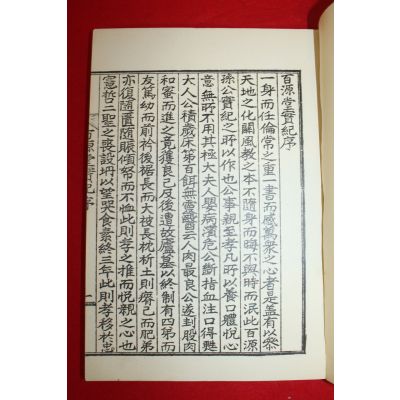 百源堂實紀序
一身而任倫常之重一書而感萬衆之心者是盖有以參
天地之化關風敎之本不隨身而晦不與時而泯此百源堂
孫公實紀之所以作也公事親至孝凡所以養口體悅心
意無所不用其極大夫人嬰病濱危公斷指血注口得甦
大人公積歲床第百餌無靈醫云人肉最良公遂刲股肉
和蜜而進之竟獲良已及後遭故廬墓以終制有四弟而
友篤幼而前衿後裾長而大被長枕析土則瘠己而肥弟
亦復隨匱隨賑傾帑而不恤此則孝之推而悅親之心也
憲哲二聖之喪設坍以望哭食素終三年此則孝移於忠
百源堂實紀序
一